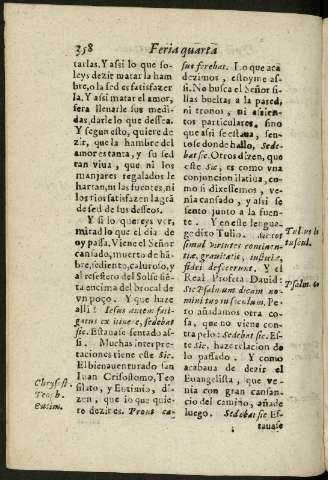 358
Feria quarta
tarlas. Y assi lo que so-
leys dezir matar la ham
bre, o la sed es satisfazer
la. Y assi matar el amor,
sera llenarle sus medi-
das, darle lo que dessea.
Y segun esto, quiere de
zir, que la hambre del
amor es tanta, y su sed
tan viua, que ni los
manjares regalados le
hartan, ni las fuentes, ni
los rios satisfazen la grã
de sed de sus desseos.
Y si lo quereys ver,
mirad lo que el dia de
oy passa. Viene el Señor
cansado, muerto de hã-
bre, sediento, caluroso, y
al resestero del Sol: se sié-
ta encima del brocal de
vn poço. Y que haze
alli? Iesus autem fati-
gatus ex itinere, sedebat
sic. Estauase sentado as-
si. Muchas interpre-
taciones tiene este Sic.
El bienauenturado san
Iuan Crisostomo, Teo
filato, y Eutimio, di-
zen, que lo que quie-
re dezir es. Prout ca-
Chrysost.
Teoph.
eutim.
sus ferebat. Lo que acà
dezimos, estoyme as-
si. No busca el Señor si-
llas bueltas a la pared,
ni tronos, ni assien-
tos particulares, sino
que assi se estaua, sen-
tose donde hallo, Sede-
bat sic. Otros dizen, que
este Sic, es como vna
conjuncion ilatiua, co-
mo si dixessemos, ve-
nia cansado, y assi se
sento junto a la fuen-
te. Y en este lengua-
ge dixo Tulio. Sic tot
simul virtutes continen-
tiæ, grauitatis, iustitiæ,
fidei defecerunt. Y el
Real Profeta Dauid:
Sic Psalmum dicam no-
mini tuo in seculum. Pe-
ro añadamos otra co-
sa, que no viene con-
tra pelo: Sedebat sic. Es-
te Sic, haze relacion de
lo passado. Y como
acabaua de dezir el
Euangelista, que ve-
nia con gran cansan-
cio del camino, añade
luego. Sedebat sic. Es-
tauase
Psalm. 60